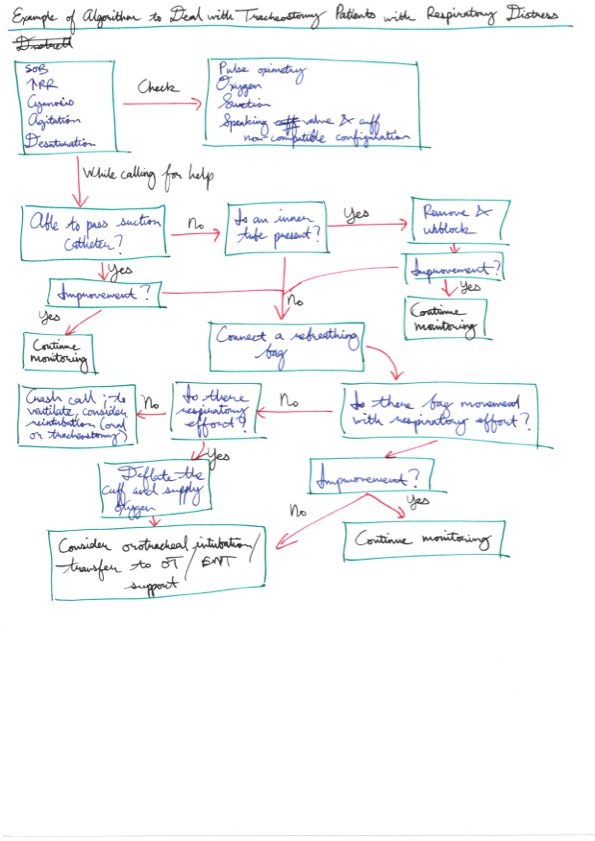 Example of Algorithm to Deal with Tracheostomy Patients with Respiratory Distress
Distress
SOB
↑RR
Cyanosis
Agitation
Desaturation
Check
Pulse oximetry
Oxygen
Suction
Speaking cuff valve & cuff
non-compatible configuration
While calling for help
Able to pass suction
catheter?
No
Is an inner
tube present?
Yes
Remove &
unblock
Yes
Improvement?
Improvement?
Yes
No
Yes
Continue
monitoring
Continue
monitoring
Connect a rebreathing
bag
Crash call; to
ventilate, consider
reintubation (oral
or tracheostomy)
No
Is there
respiratory
effort?
No
Is there bag movement
with respiratory effort?
Yes
Deflate the
cuff and supply
oxygen
Improvement?
No
Yes
Consider orotracheal intubation/
transfer to OT/ENT
support
Continue monitoring